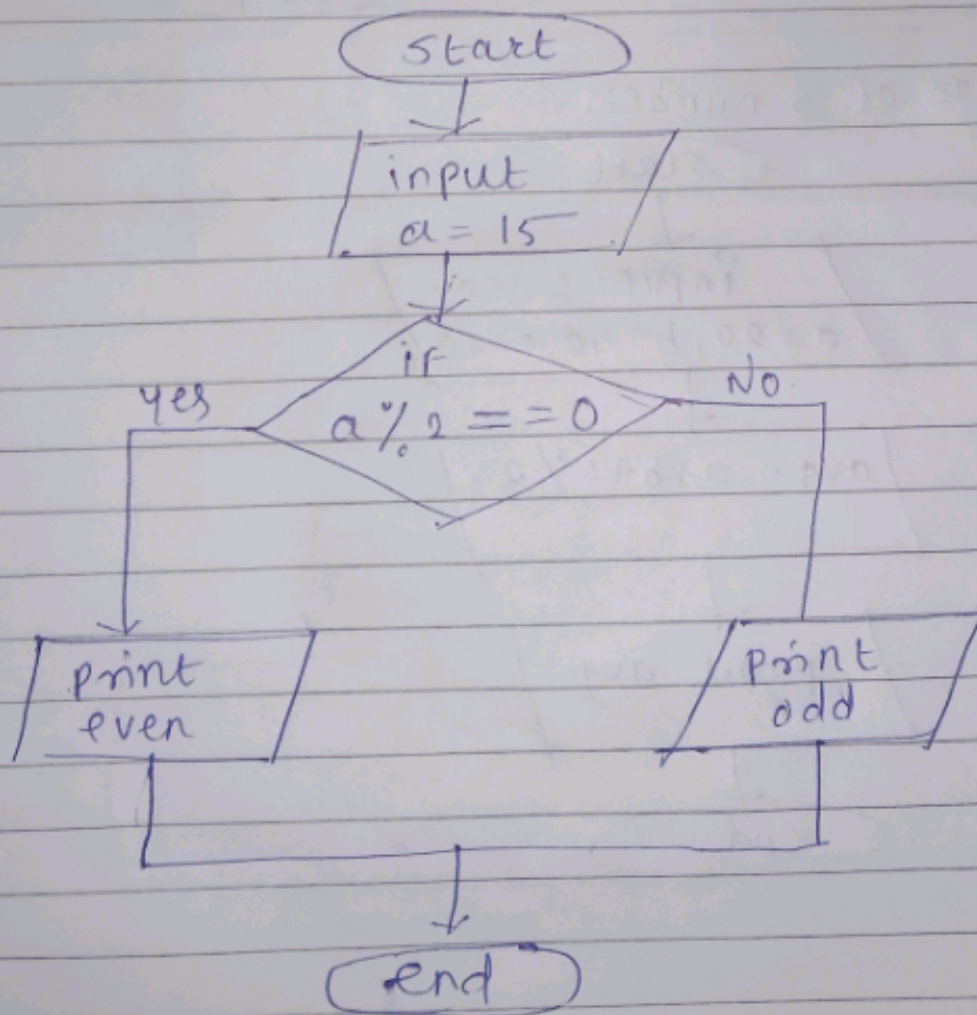 start
input
a = 15
if
yes
No
a % 2 = = 0
print
even
print
odd
end